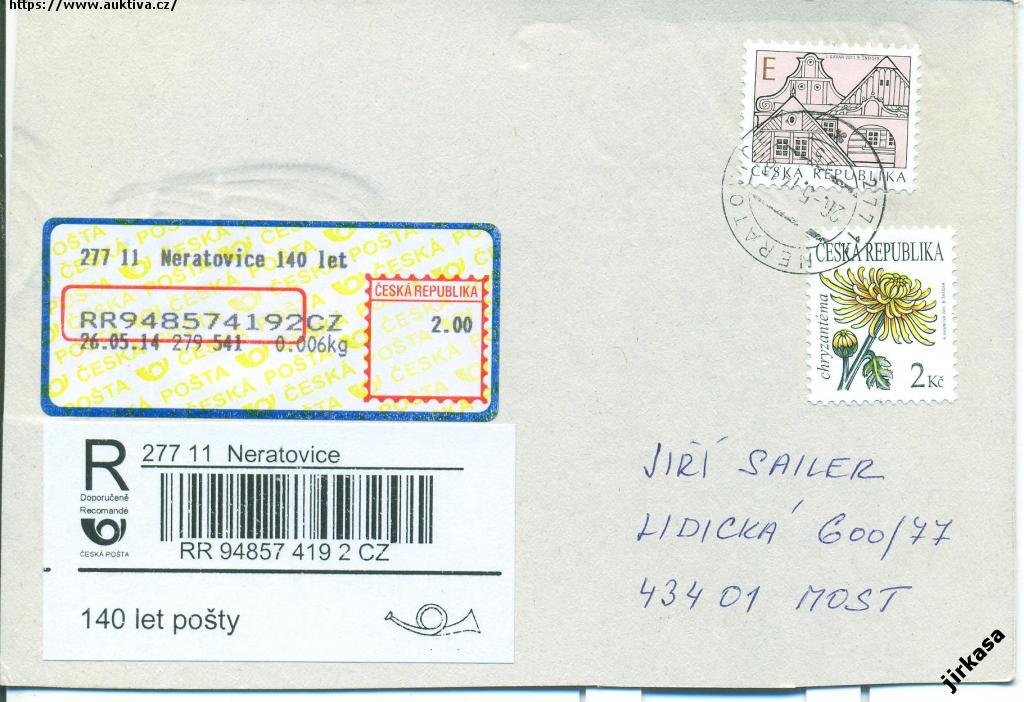 https://www.auktiva.cz/
E
J. KAVAN 2011 B. ŠNEIDER
ČESKÁ REPUBLIKA
277 11 NERATOVICE 1
26.-5.
277 11 Neratovice 140 let
ČESKÁ REPUBLIKA
RR948574192CZ
2.00
26.05.14 279 541 0.006kg
ČESKÁ POŠTA
ČESKÁ REPUBLIKA
chryzantéma
2 Kč
R
277 11 Neratovice
Doporučeně
Recomandé
ČESKÁ POŠTA
RR 94857 419 2 CZ
140 let pošty
JIŘÍ SAILER
LIDICKÁ 600/77
434 01 MOST
jirkasa